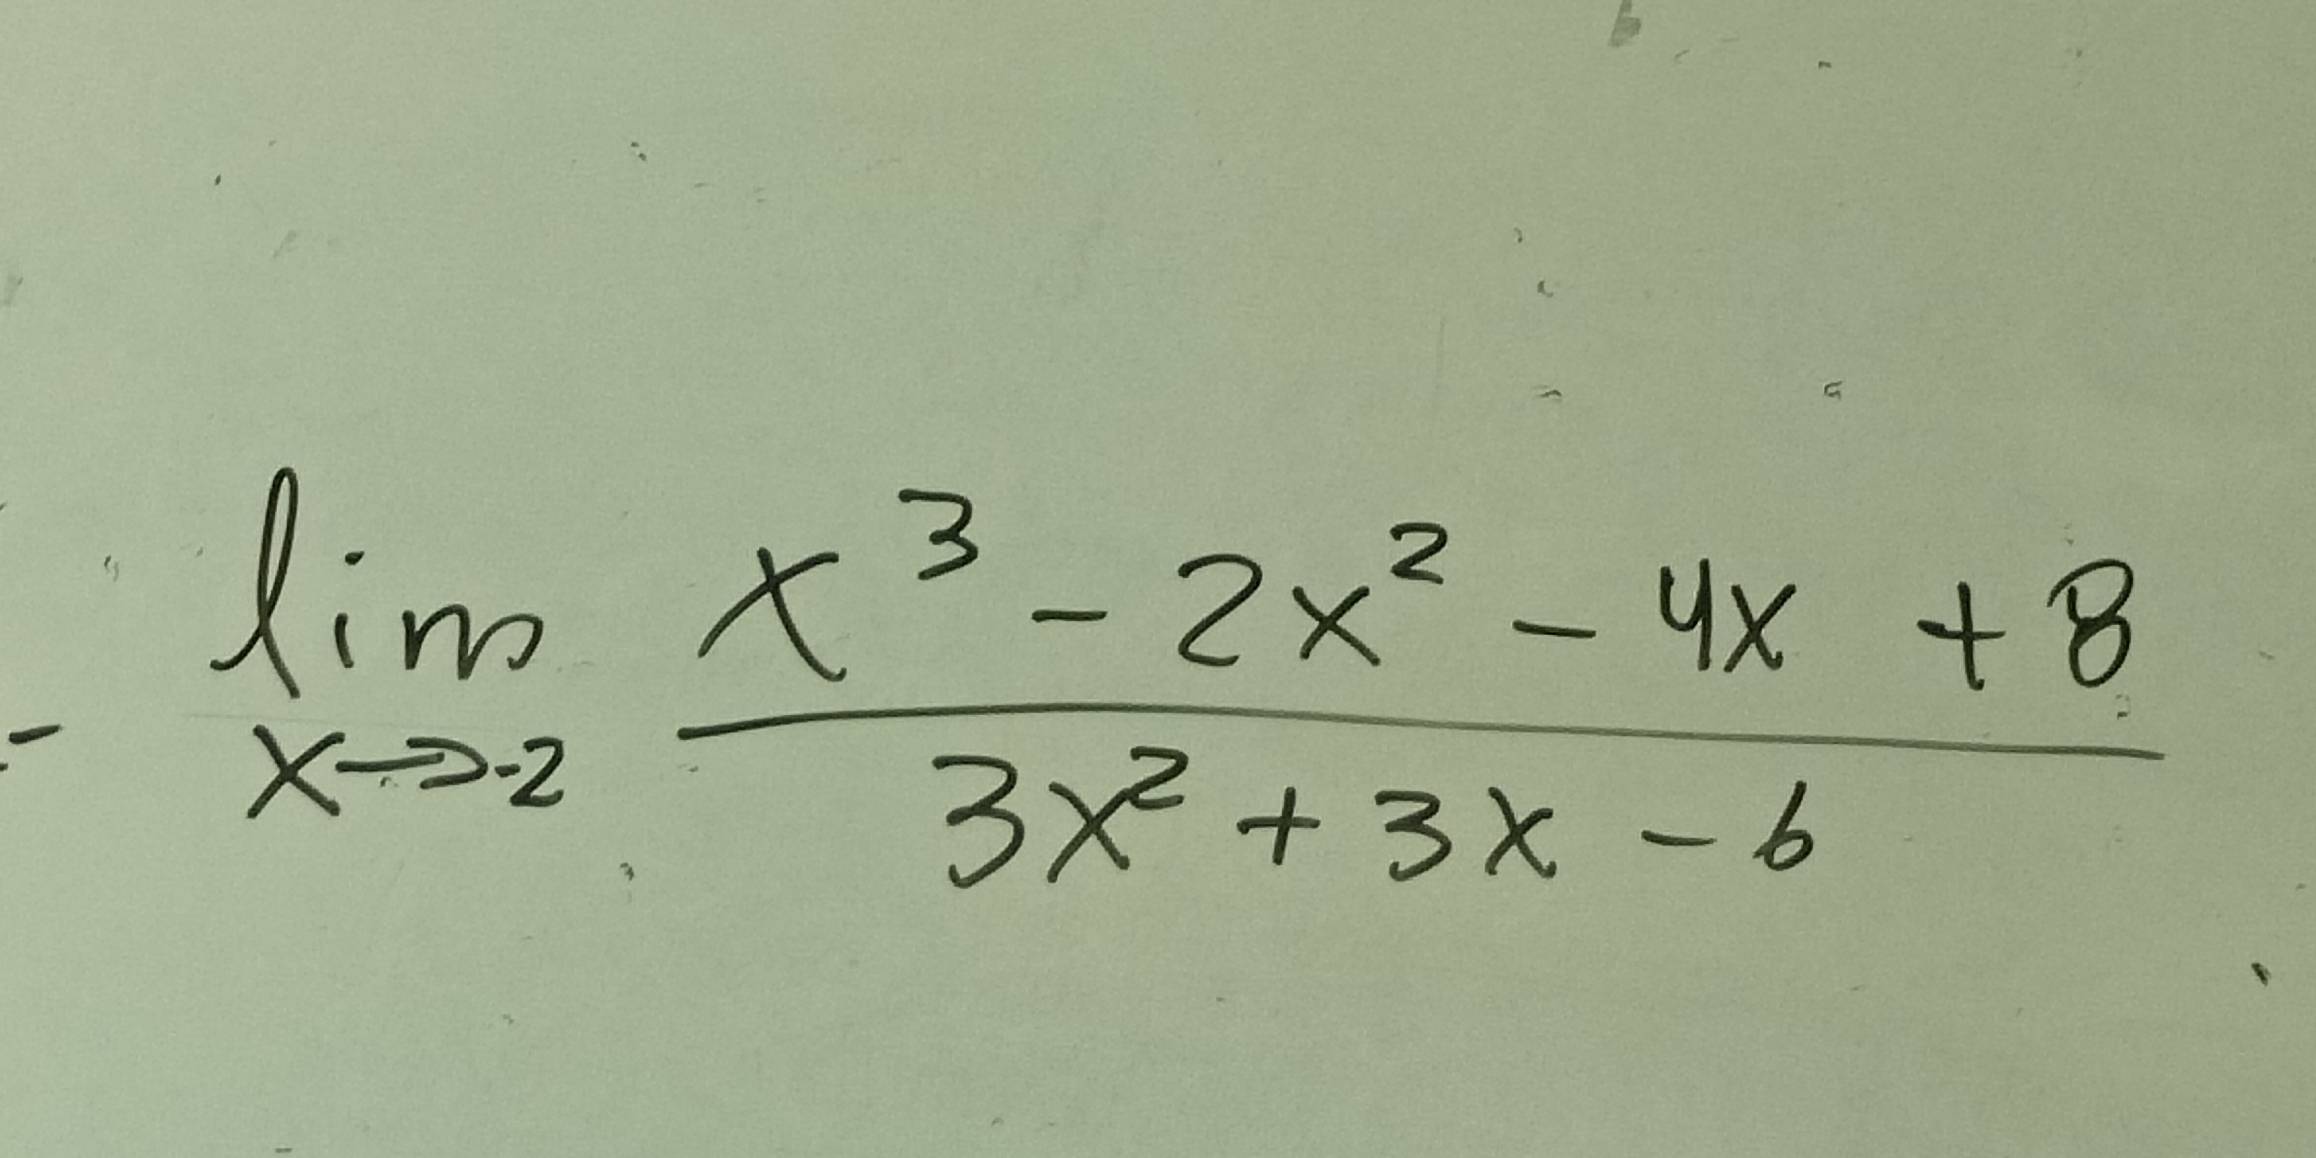 = lim x→-2 (x³ - 2x² - 4x + 8) / (3x² + 3x - 6)